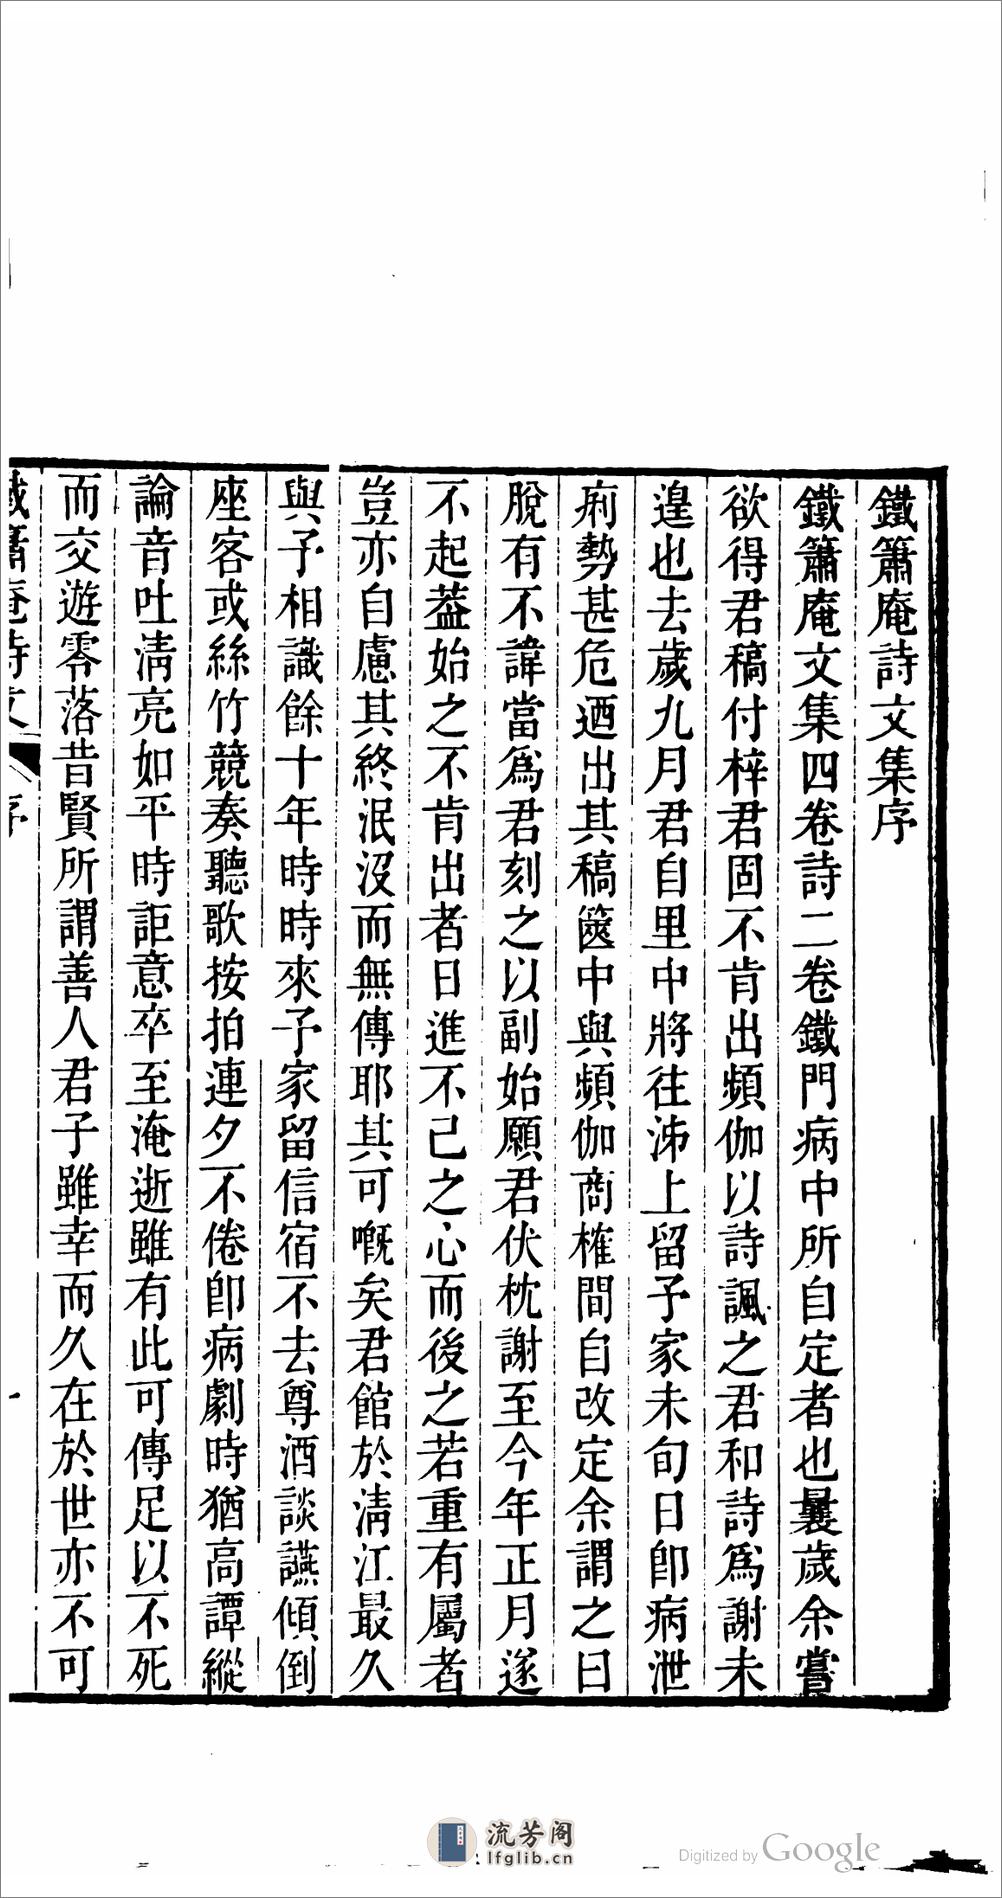 鐵簫庵詩文集序
鐵簫庵文集四卷詩二卷鐵門病中所自定者也曩歲余嘗
欲得君稿付梓君固不肯出頻伽以詩諷之君和詩爲謝未
遑也去歲九月君自里中將往泲上留予家未旬日卽病泄
痢勢甚危迺出其稿篋中與頻伽商榷間自改定余謂之曰
脫有不諱當爲君刻之以副始願君伏枕謝至今年正月遂
不起葢始之不肯出者日進不已之心而後之若重有屬者
豈亦自慮其終泯沒而無傳耶其可嘅矣君館於淸江最久
與予相識餘十年時時來予家留信宿不去尊酒談讌傾倒
座客或絲竹競奏聽歌按拍連夕不倦卽病劇時猶高譚縱
論音吐淸亮如平時詎意卒至淹逝雖有此可傳足以不死
而交遊零落昔賢所謂善人君子雖幸而久在於世亦不可
鐵簫庵詩文 序
流芳阁
lfglib.cn
Digitized by Google